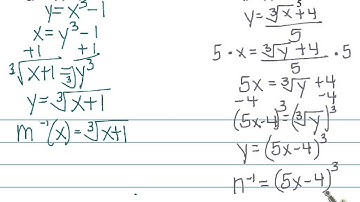 y=x³-1
x=y³-1
+1 +1
∛x+1=∛y³
y=∛x+1
m⁻¹(x)=∛x+1
y=∛x+4/5
5·x=∛y+4/5·5
5x=∛y+4
-4 -4
(5x-4)³=(∛y)³
y=(5x-4)³
n⁻¹=(5x-4)³